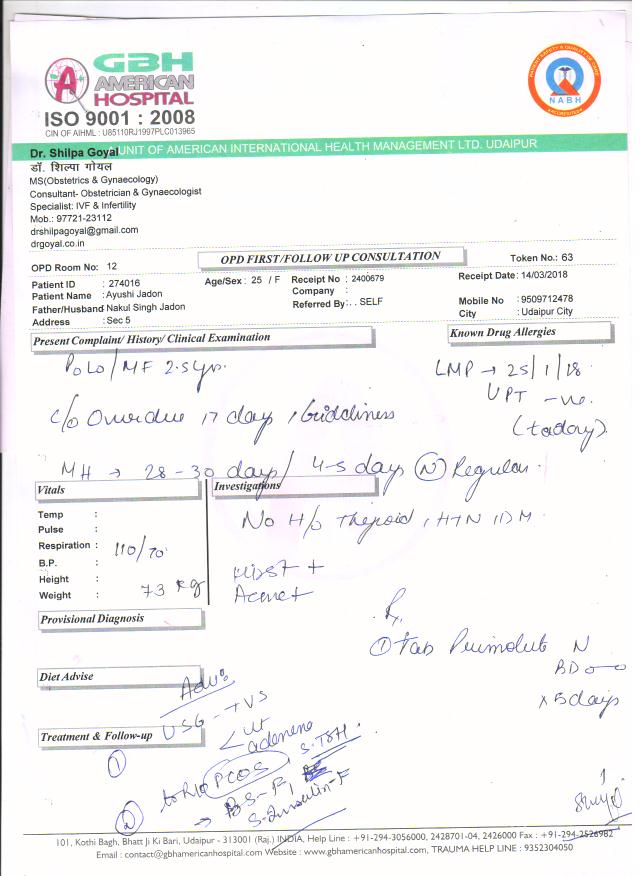 GBH
AMERICAN
HOSPITAL
ISO 9001 : 2008
CIN OF AIHML : U85110RJ1997PLC013965
NABH
UNIT OF AMERICAN INTERNATIONAL HEALTH MANAGEMENT LTD. UDAIPUR
Dr. Shilpa Goyal
डॉ. शिल्पा गोयल
MS(Obstetrics & Gynaecology)
Consultant- Obstetrician & Gynaecologist
Specialist: IVF & Infertility
Mob.: 97721-23112
drshilpagoyal@gmail.com
drgoyal.co.in
OPD Room No: 12 OPD FIRST/FOLLOW UP CONSULTATION Token No.: 63
Patient ID : 274016 Age/Sex : 25 / F Receipt No : 2400679 Receipt Date : 14/03/2018
Patient Name : Ayushi Jadon Company :
Father/Husband Nakul Singh Jadon Referred By : . . SELF Mobile No : 9509712478
Address : Sec 5 City : Udaipur City
Present Complaint/ History/ Clinical Examination Known Drug Allergies
P0L0/MF 2.5yrs. LMP → 25/1/18
UPT -ve.
c/o Overdue 17 days, Giddiness (today)
MH → 28-30 days/ 4-5 days (N) Regular.
Vitals Investigations
Temp :
Pulse :
No H/o Thyroid, HTN, DM
Respiration : 110/70
B.P. :
Height :
Weight : 73 kg
Hirst +
Acne +
Provisional Diagnosis
Rx
① Tab Primolut N
BD
x 5 days
Diet Advise
Adv:
Treatment & Follow-up
① USG → TVS
< Ut
adenexa
to R/o PCOS
② → B.S-F, S.TSH.
S. Insulin-F
101, Kothi Bagh, Bhatt Ji Ki Bari, Udaipur - 313001 (Raj.) INDIA, Help Line : +91-294-3056000, 2428701-04, 2426000 Fax : +91-294-2526982
Email : contact@gbhamericanhospital.com Website : www.gbhamericanhospital.com, TRAUMA HELP LINE : 9352304050